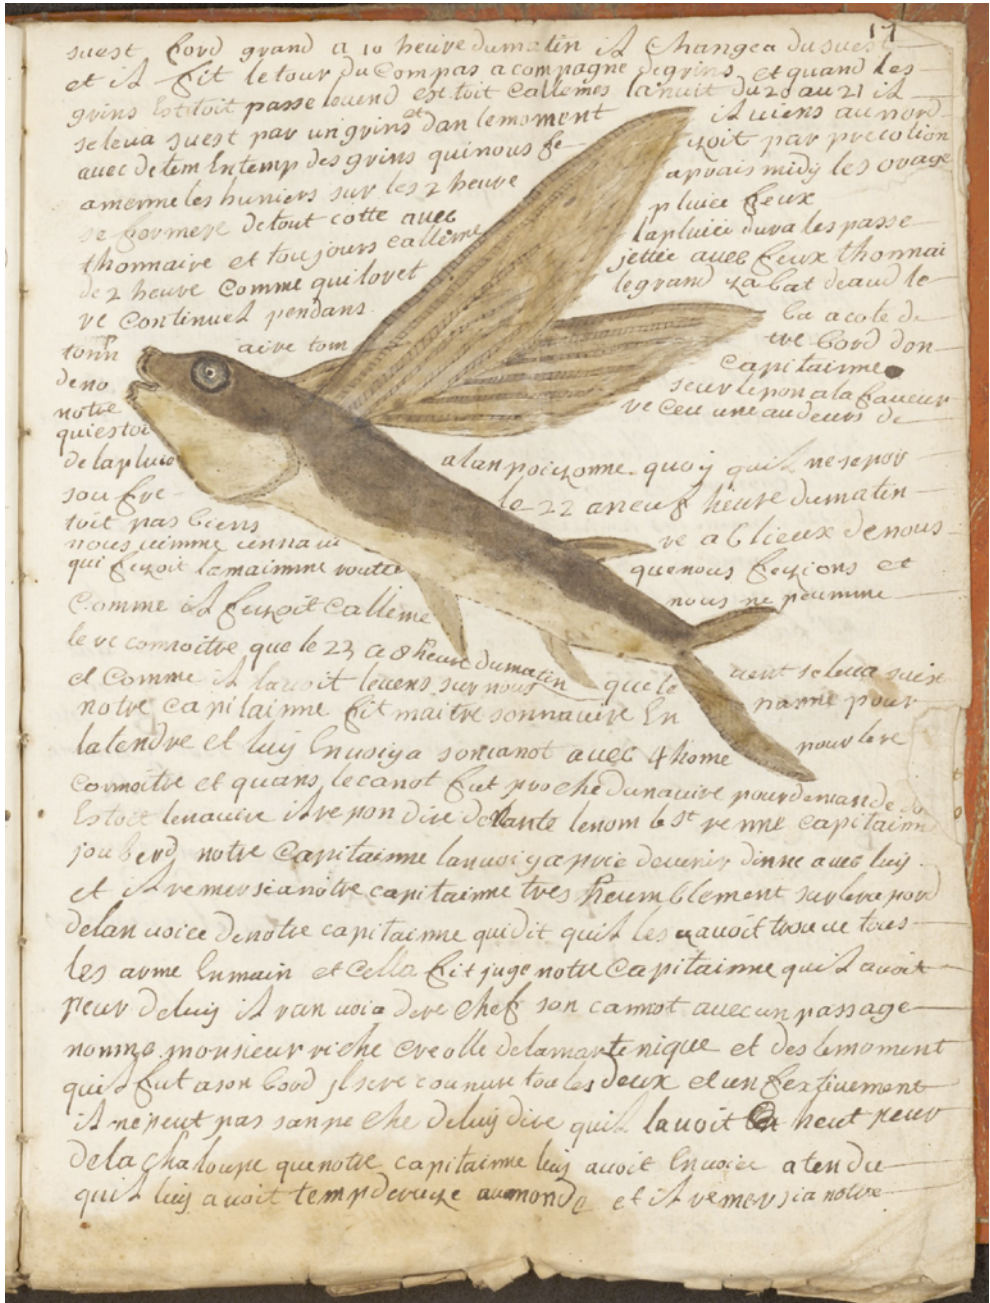 17
suest ford grand a 10 heure du matin il changea du suest
et il fit le tour du compas acompagne de grins et quand les
grins Estoit passe le vend estoit callemes la nuit du 20 au 21 il
se leva suest par un grins et dan le moment il viens au nord
avec de tem En temp des grins qui nous fe zoit par precotion
amerme les huniers sur les 2 heure apraismidy les orage
se formere de tout cotte avec pluiee feux
thonnaire et toujours calleme la pluiee dura les passe
de 2 heure comme qui lovet jettee avec feux thonnai
re continuel pendans le grand zabat deaud le
tonn aire tom ba a cote de
deno tre bord don
notre capitainne
qui estoi seur le pon a la faveur
de la pluie re ceu une audeurs de
soufre alan poizonne quoy quil ne se por
toit pas biens le 22 a neuf heure du matin
nous vimme un navi re a 6 lieux de nous
qui fezoit la maimme routte que nous fezions et
comme il fezoit calleme nous ne peumme
le re connoitre que le 23 a 8 heure du matin que le vent se leva
et comme il lavoit le vens sur nous
notre capitainne fit maitre son navire En panne pour
latendre et luy Envoiya son canot avec 4 home pour le re
connoitre et quans le canot fut proche du navire pour demande
Estoit le navire il re pon dire de nante le nom le st renne capitainne
jouberd notre capitainne lanvoiya prie de venir dinne avec luy
et il remersia notre capitainne tres heumblement sur le re pond
delan voiee de notre capitainne qui dit quil les avoit trouve tous
les arme En main et cella fit juge notre capitainne quil avoit
peur de luy il ran voia de re chef son cannot avec un passage
nomme monsieur riche creolle de la martenique et des le moment
quil fut a son bord il se re counure tou les deux et en fextivement
il ne peut pas sanpe che de luy dire quil lavoit heut peur
de la chaloupe que notre capitainne luy avoit Envoiee atendu
quil luy avoit temp de au monde et il remersia notre